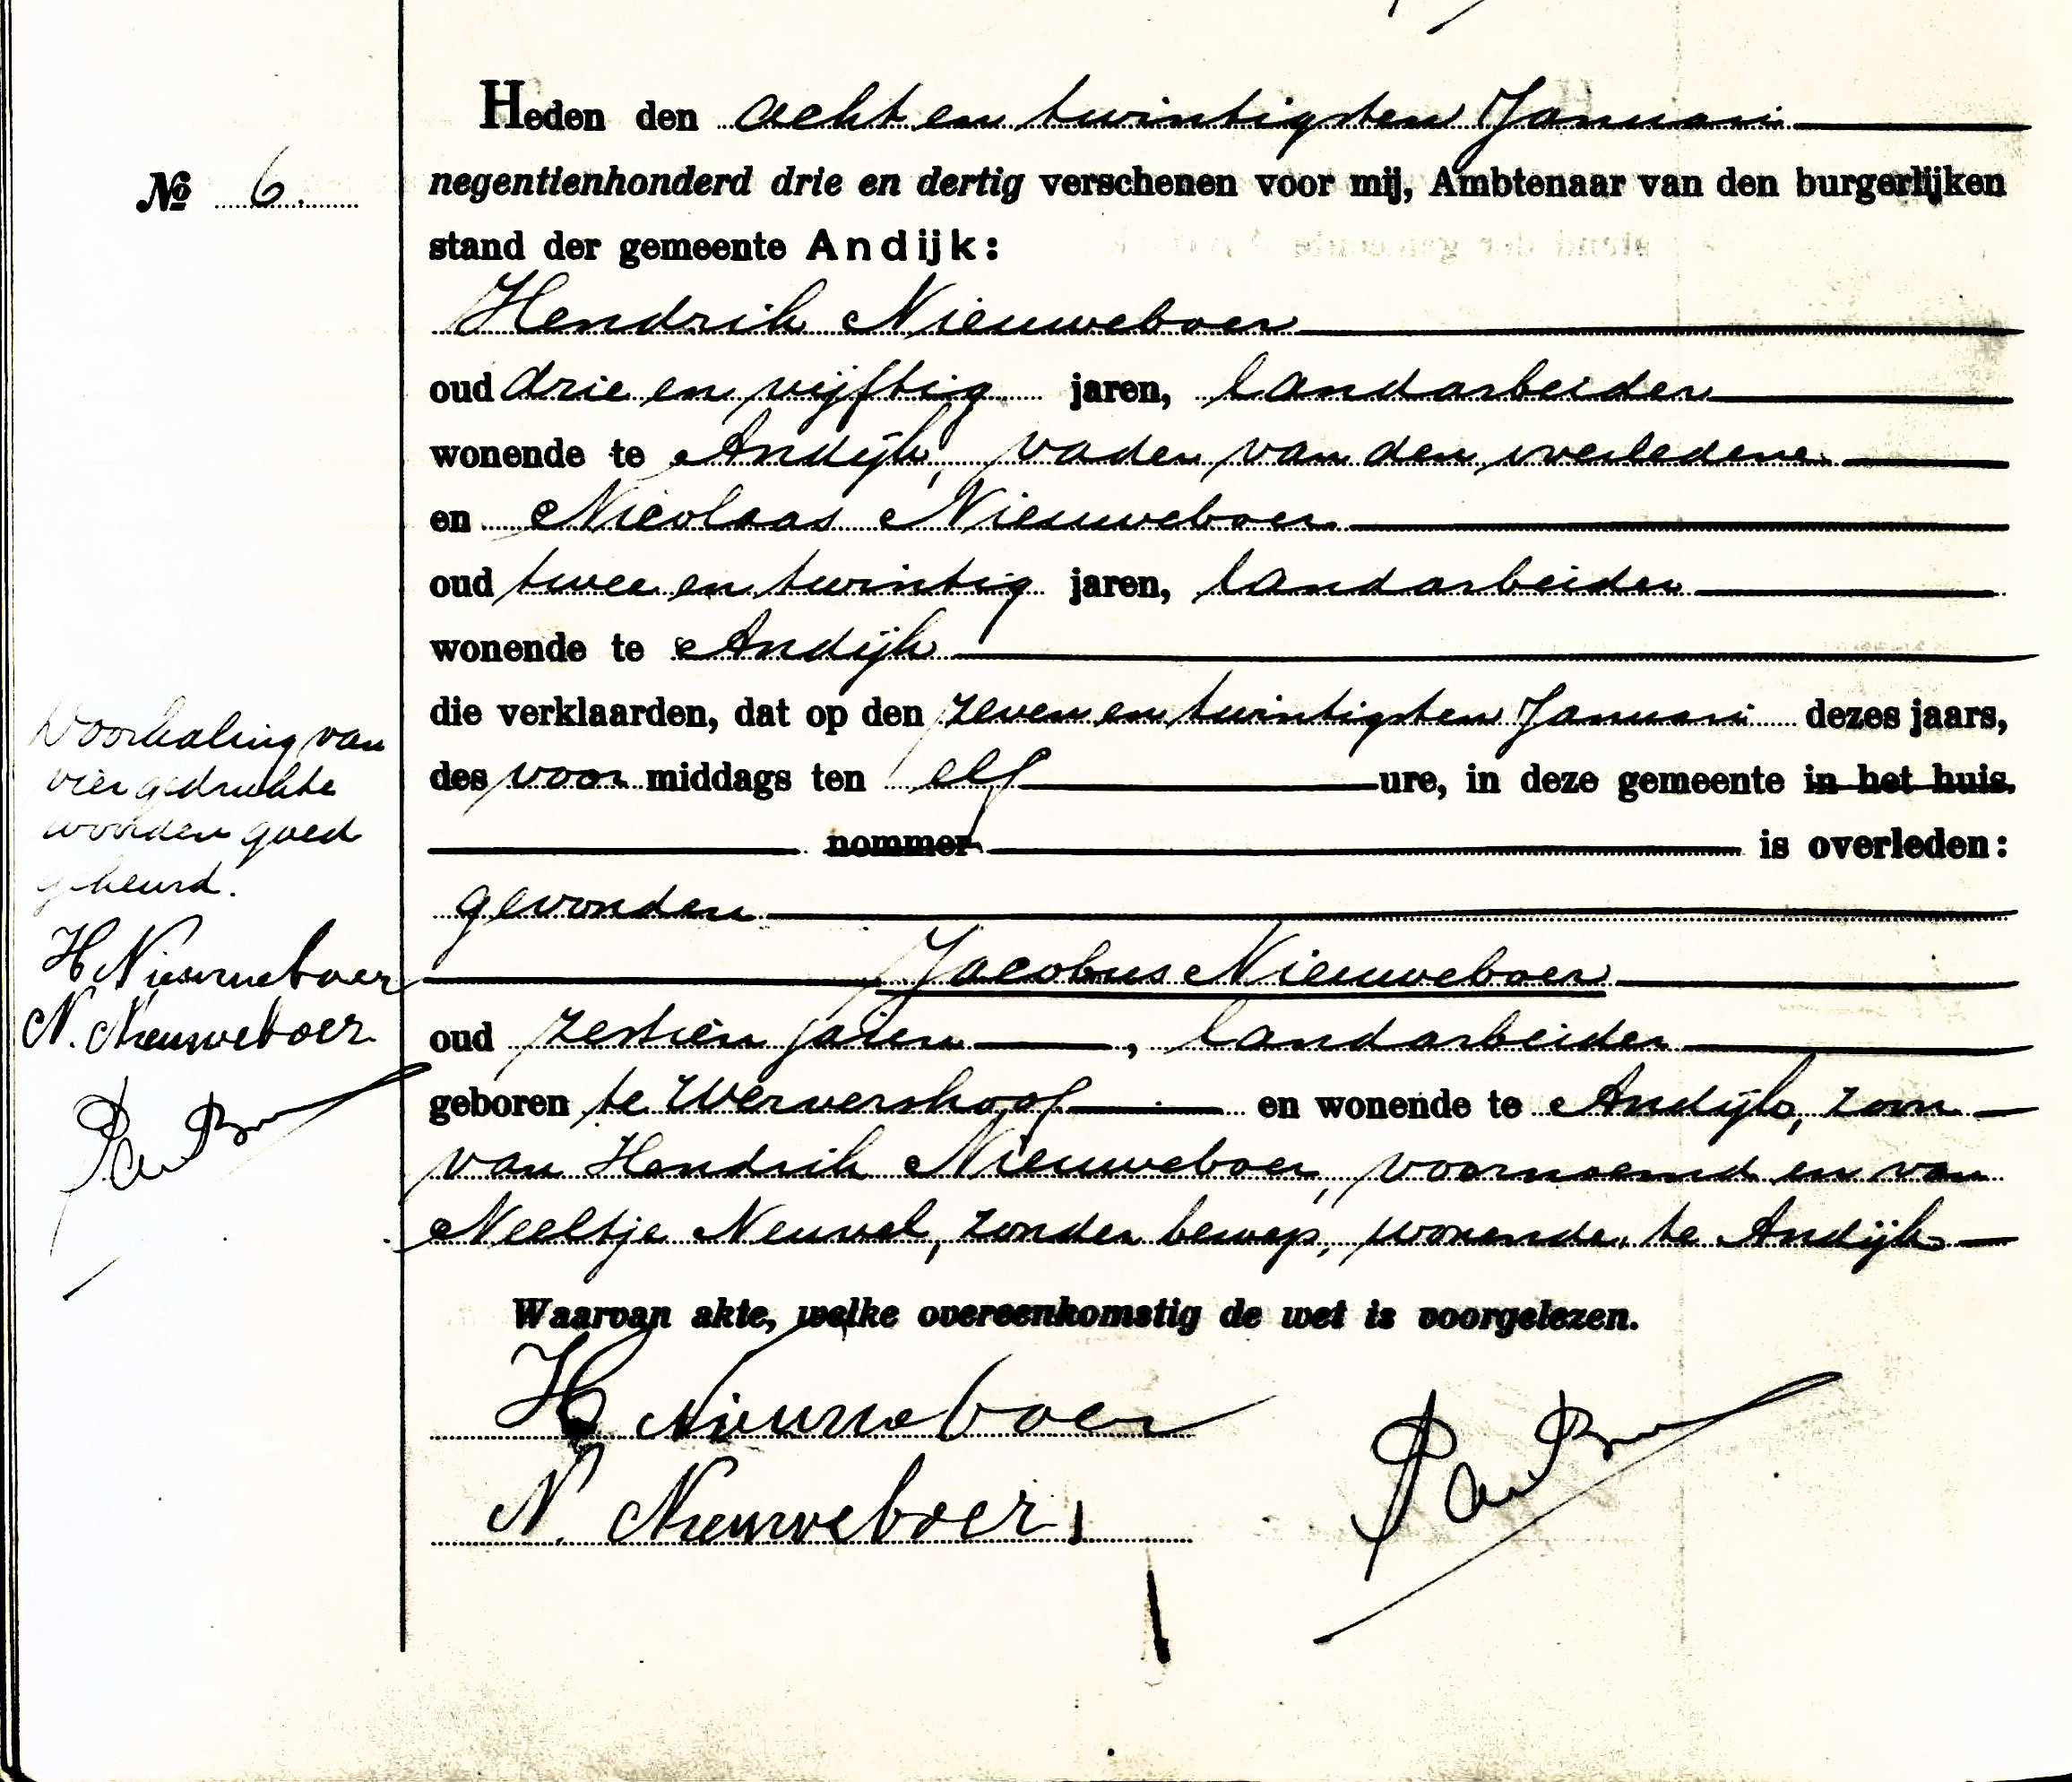 Heden den acht en twintigsten Januari
№ 6.
negentienhonderd drie en dertig verschenen voor mij, Ambtenaar van den burgerlijken
stand der gemeente Andijk:
Hendrik Nieuweboer
oud drie en vijftig jaren, landarbeider
wonende te Andijk, vader van den overledene
en Nicolaas Nieuweboer
oud twee en twintig jaren, landarbeider
wonende te Andijk
die verklaarden, dat op den zeven en twintigsten Januari dezes jaars,
des voor middags ten elf ure, in deze gemeente in het huis.
nommer is overleden:
gevonden
Jacobus Nieuweboer
oud zestien jaren, landarbeider
geboren te Wervershoof en wonende te Andijk, zoon
van Hendrik Nieuweboer, voornoemd en van
Neeltje Neuvel, zonder beroep, wonende te Andijk
Waarvan akte, welke overeenkomstig de wet is voorgelezen.
H Nieuweboer
N. Nieuweboer
Doorhaling van
vier gedrukte
woorden goed
gekeurd.
H Nieuweboer
N. Nieuweboer